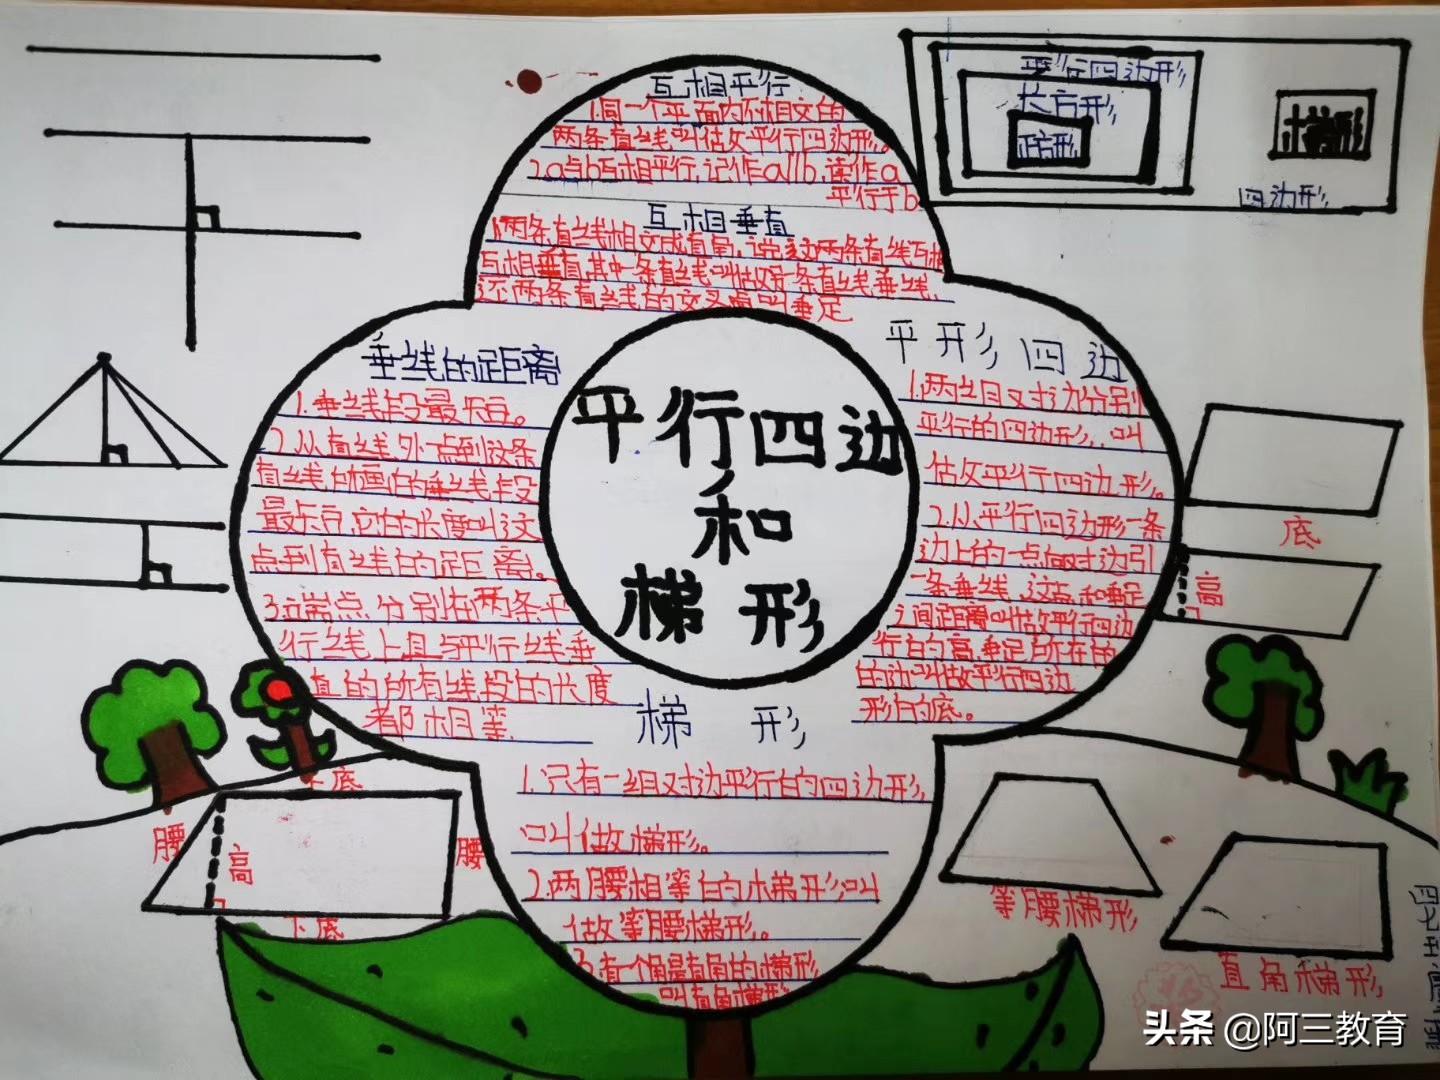 互相平行
1.同一个平面内不相交的
两条直线叫估攵平行四边形。
2.a与b互相平行,记作a//b,读作a
平行于b
互相垂直
1.两条直线相交成直角,说这两条直线互相
互相垂直,其中一条直线叫做另一条直线垂线,
这两条直线的交叉点叫垂足
平行四边形
长方形
正方形
梯形
四边形
垂线的距离
1.垂线段最短。
2.从直线外一点到这条
直线所画的垂线段
最短,它的长度叫这
点到直线的距离。
3.端点分别在两条平
行线上且与平行线垂
直的所有线段的长度
都相等
平行四边
和
梯形
平形四边
1.两组对边分别
平行的四边形,叫
估攵平行四边形。
2.从平行四边形一条
边上的一点向对边引
一条垂线,这点和垂足
之间距离叫做平行四边
行的高,垂足所在的
的边叫做平行四边
形的底。
底
高
梯形
1.只有一组对边平行的四边形,
叫做梯形。
2.两腰相等的梯形叫
做等腰梯形。
3.有一个角是直角的梯形
叫直角梯形
底
腰
高
腰
下底
等腰梯形
直角梯形
头条 @阿三教育